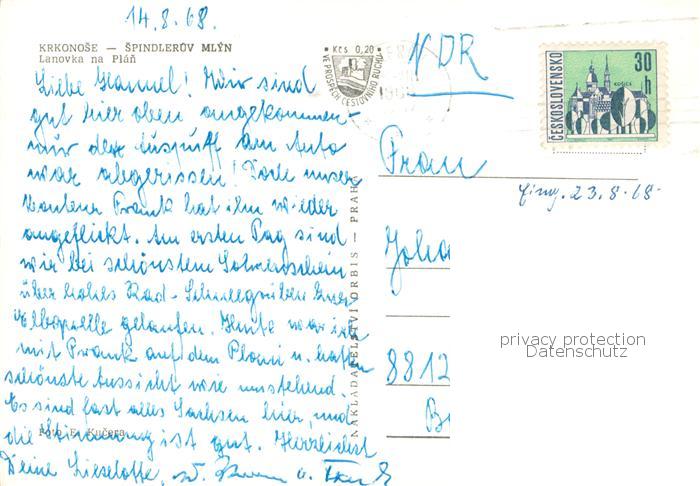 14.8.68.
KRKONOŠE — ŠPINDLERŮV MLÝN
Lanovka na Pláň
Liebe Hannel! Wir sind
gut hier oben angekommen-
nur der Auspuff am Auto
war abgerissen! Doch unser
Frank hat ihn wieder
angeflickt. Am ersten Tag sind
wir bei schönstem Sonnenschein
über hohes Rad-Schneegruben
Elbquelle gelaufen. Heute war ich
mit Frank auf dem Planur u. hatten
schönste Aussicht wie umstehend.
Es sind fast alles Sachsen hier, und
die Stimmung ist gut. Herzlichst
Deine Lieselotte, u.
Foto E. Kučera
NAKLADATELSTVÍ ORBIS — PRAHA
Kčs 0,20
VE PROSPĚCH CESTOVNÍHO RUCHU
NDR
ČESKOSLOVENSKO
30 h
KOŠICE
Frau
Eing. 23.8.68.
Joha
8812
B
privacy protection
Datenschutz